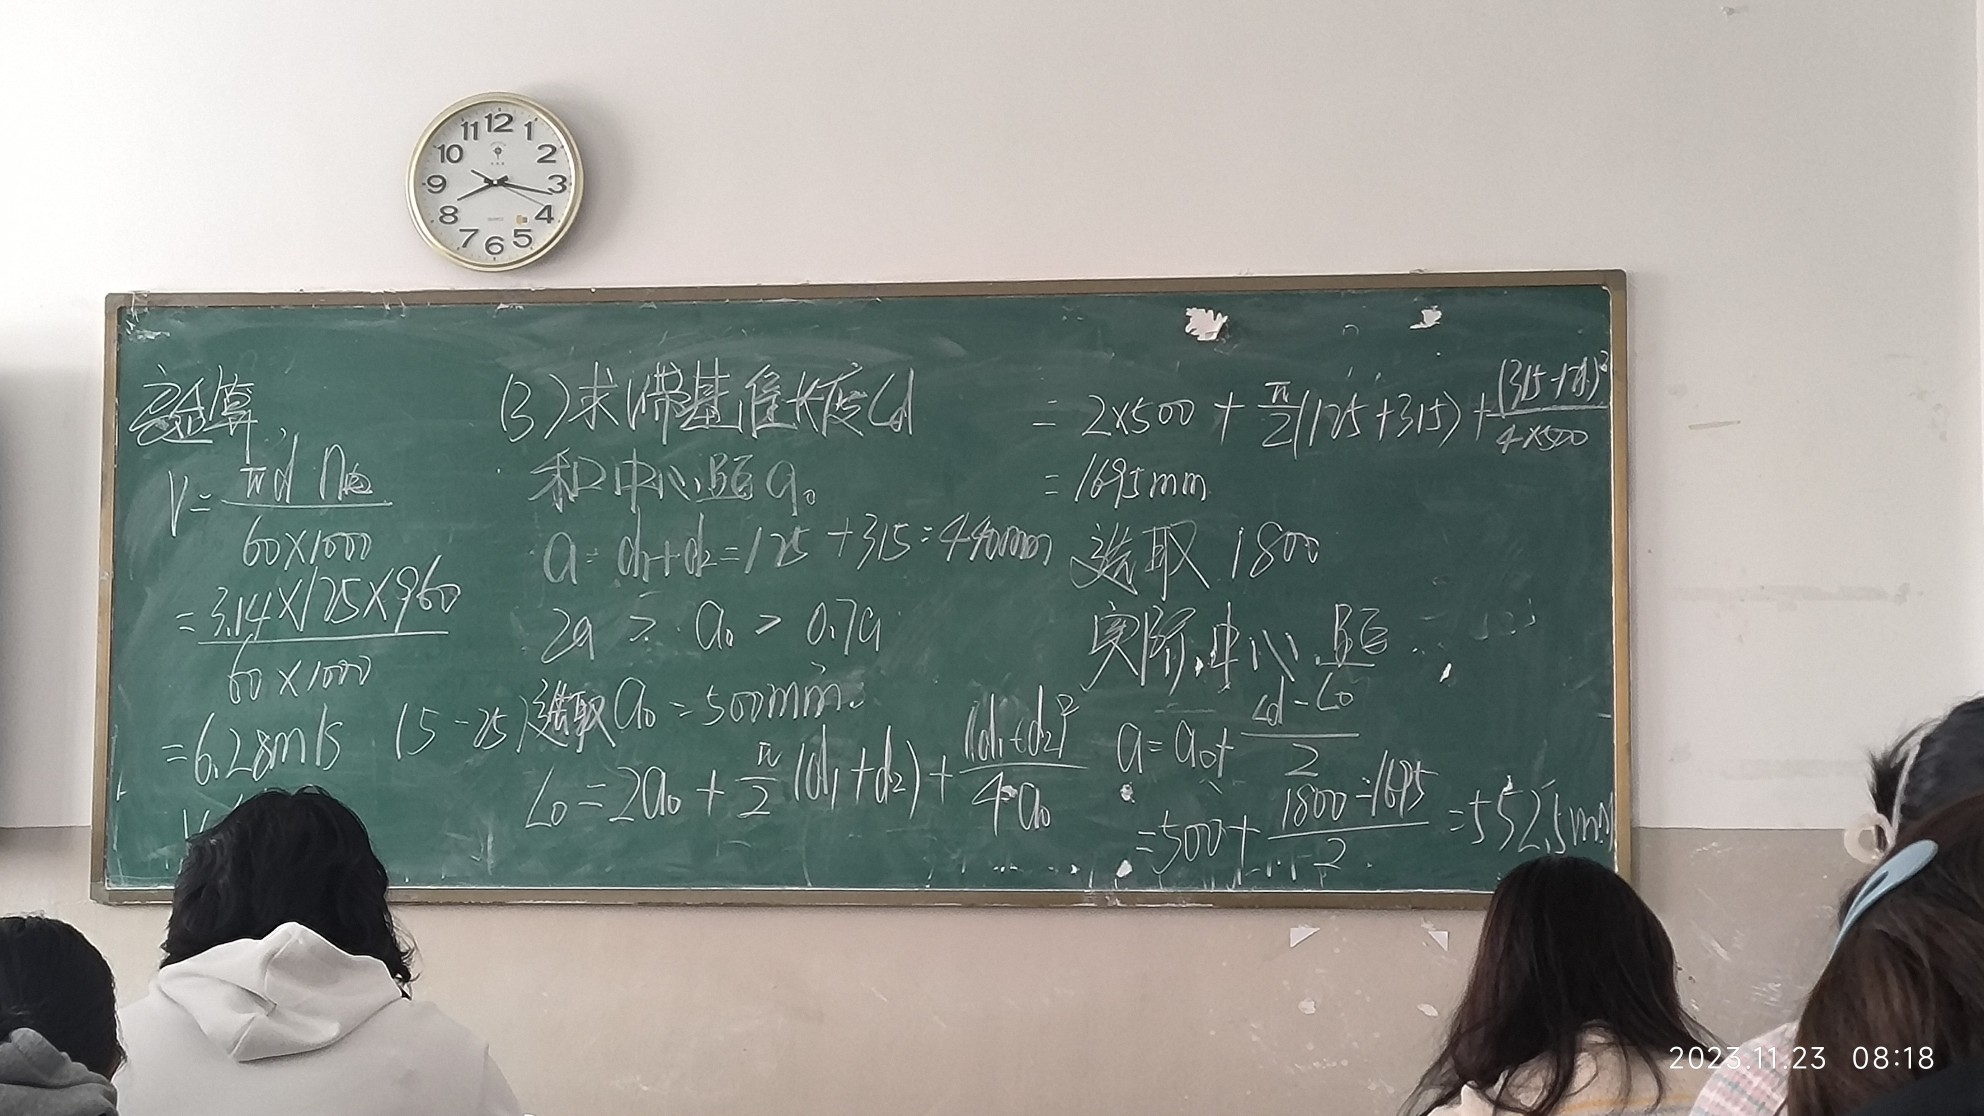 验算
V = πd₁n / 60×1000
= 3.14×125×960 / 60×1000
= 6.28m/s (5-25)
(3)求V带基准长度Ld
和中心距a。
a = d1+d2 = 125+315 = 440mm
2a > a0 > 0.7a
选取a0 = 500mm
L0 = 2a0 + π/2 (d1+d2) + (d1+d2)² / 4a0
= 2×500 + π/2(125+315) + (315+d1)² / 4×500
= 1695mm
选取1800
实际中心距
a = a0 + Ld-L0 / 2
= 500 + 1800-1695 / 2 = 552.5mm
12 1 2 3 4 5 6 7 8 9 10 11
2023.11.23 08:18